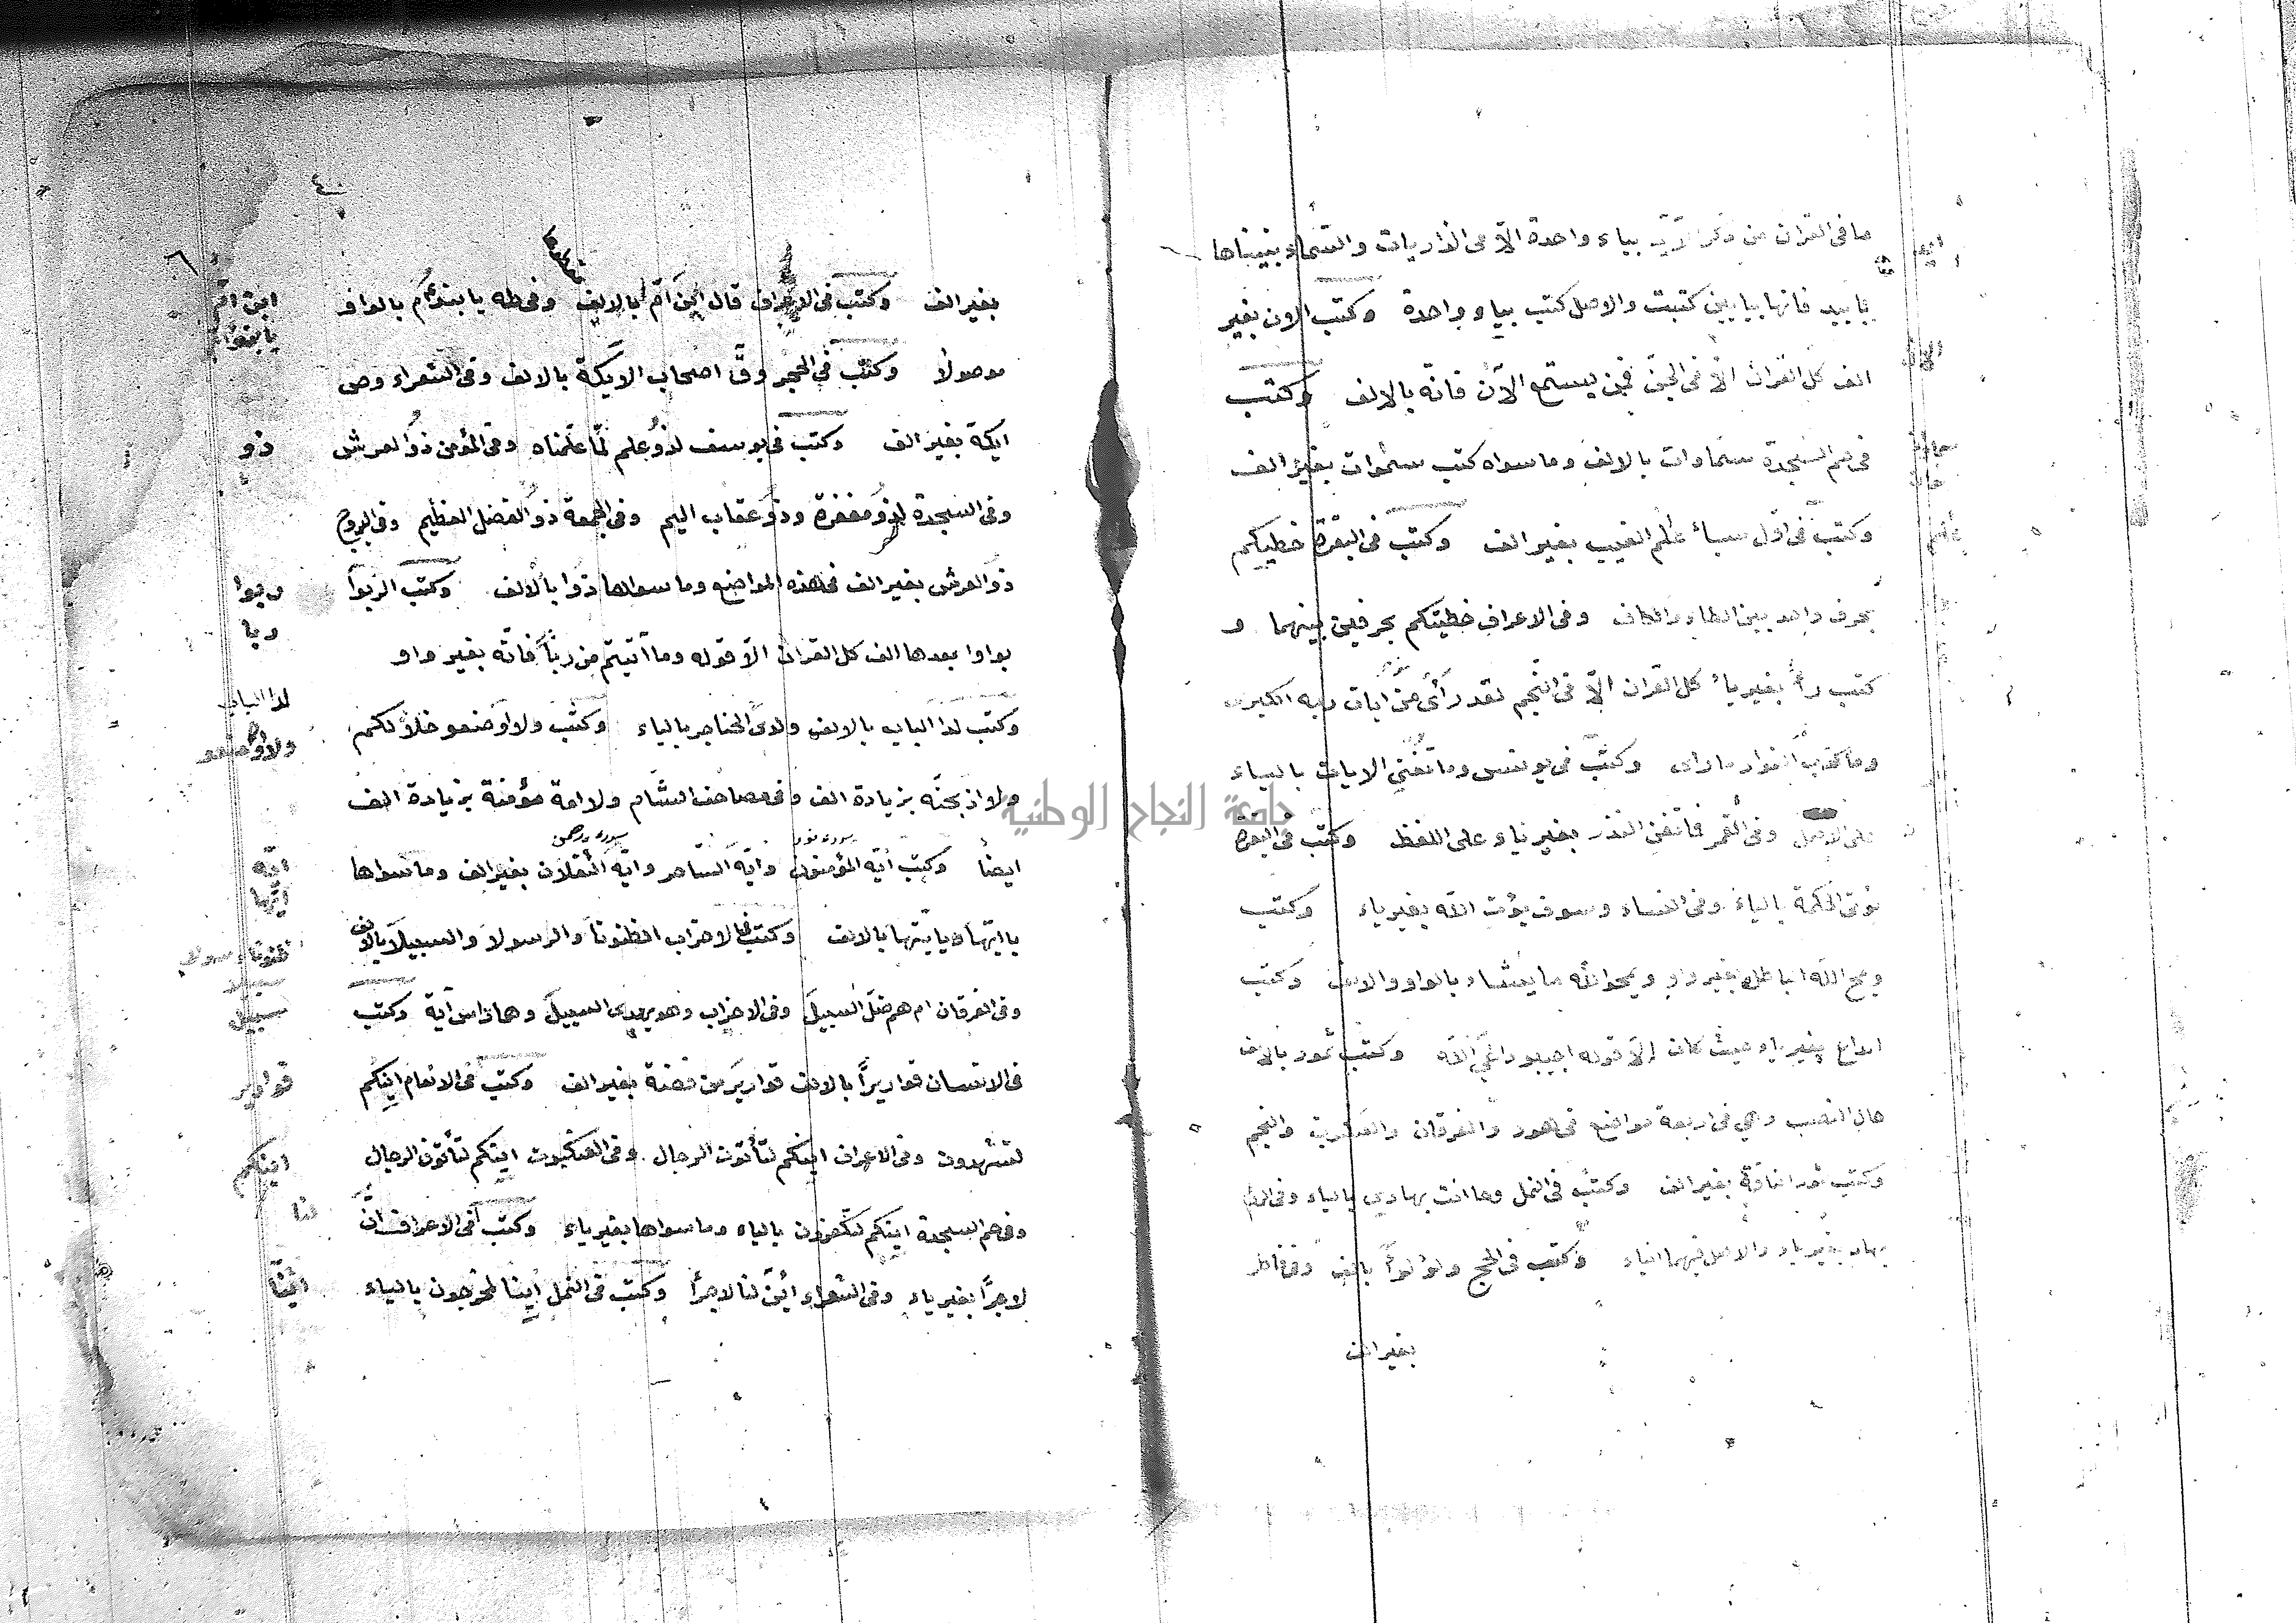 ما فى القران من ذكر الايد بياء واحدة الّا فى الذاريات والسّماء بنيناها
باييد فانها بيايين كتبت والاصل كتب بياء واحدة وكتب الان بغير
الف كل القران الّا فى الجنّ فمن يستمع الآن فانّه بالالف وكتب
فى حم السّجدة سماوات بالالف وما سواه كتب سموات بغير الف
وكتب فى اوّل سبأ علم الغيب بغير الف وكتب فى البقرة خطيكم
بحرف واحد بين الطاء والكاف وفى الاعراف خطيتكم بحرفين بينهما و
كتب رأ بغير ياء كل القران الّا فى النّجم لقد رأى من ايات ربه الكبرى
وما كذب الفواد ما راى وكتب فى يونس وما تغنى الايات بالياء
على الاصل وفى القمر فما تغن النذر بغير ياء على اللفظ وكتب فى البقرة
يؤتى الحكمة بالياء وفى النساء وسوف يؤت الله بغير ياء وكتب
ويمح الله الباطل بغير واو ويمحوا الله ما يشاء بالواو والالف وكتب
الداع بغير ياء حيث كان إلّا قوله اجيبوا داعي الله وكتب ثمود بالالف
حال النصب وهي فى اربعة مواضع فى هود والفرقان والعنكبوت والنجم
وكتب ثمود الناقة بغير الف وكتب فى النمل وما انت بهادى بالياء وفى الروم
بهاد بغير ياء والاصل فيهما الياء وكتب فى الحج ولؤلؤاً بالف وفى فاطر
بغير الف
بغير الف وكتب فى الاعراف قال ابن امّ بالالف وفى طه يا بنؤم بالواو
موصولا وكتب فى الحجر وقۤ اصحاب الايكة بالالف وفى الشعراء وص
ايكة بغير الف وكتب فى يوسف لذو علم لمّا علّمناه وفى المؤمن ذو العرش
وفى السّجدة لذو مغفرة وذو عقاب اليم وفى الجمعة ذو الفضل العظيم وفى البروج
ذو العرش بغير الف فى هذه المواضع وما سواها ذوا بالالف وكتب الربوا
بواوا بعدها الف كل القران الّا قوله وما آتيتم من رباً فانّه بغير واو
وكتب لدا الباب بالالف ولدى الحناجر بالياء وكتب ولا اوضعو خلالكم
ولا اذبحنّه بزيادة الف وفى مصاحف الشّام ولا امة مؤمنة بزيادة الف
سورة نور سورة رحمن
ايضاً وكتب ايّه المؤمنون وايّه السّاحر وايّه الثقلان بغير الف وما سواها
يا ايّها ويا يتها بالالف وكتب فى الاحزاب الظنونا والرسولا والسبيلا بالالف
وفى الفرقان ام هم ضلّ السبيل وفى الاحزاب وهو يهدى السبيل وهاذا س آية وكتب
فى الانسان قواريراً بالالف قوارير من فضة بغير الف وكتب فى الانعام اينكم
لتشهدون وفى الاعراف اينكم لتأتون الرجال وفى العنكبوت اينكم لتأتون الرجال
وفى حم السجدة اينكم لتكفرون بالياء وما سواها بغير ياء وكتب فى الاعراف انّ
لاجرًا بغير ياء وفى الشعراء أئنّ لنا لاجرًا وكتب فى النمل أينا لمخرجون بالياء
ابن امّ
يا بنؤم
ذو
ربوا
ربا
لدا الباب
ولا اوضعو
ايّه
ايّها
سبيلا
سبيل
قوارير
اينكم
لنا
ائنّا
٦
جامعة النجاح الوطنية